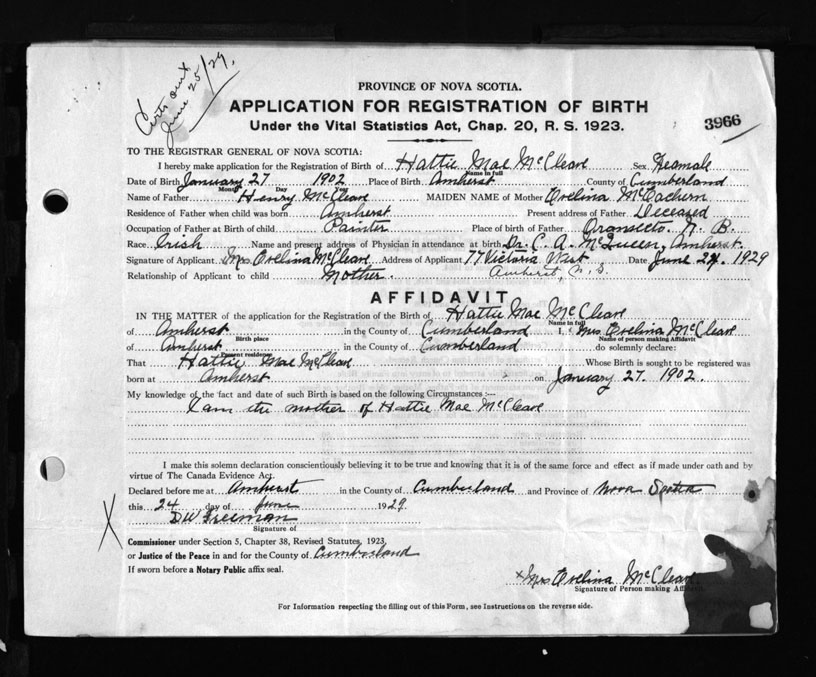 Certs out
June 25/29.
PROVINCE OF NOVA SCOTIA.
APPLICATION FOR REGISTRATION OF BIRTH
Under the Vital Statistics Act, Chap. 20, R. S. 1923.
3966
TO THE REGISTRAR GENERAL OF NOVA SCOTIA:
I hereby make application for the Registration of Birth of Hattie Mae McCleave Sex Feamale
Name in full
Date of Birth January 27 1902 Place of Birth Amherst County of Cumberland
Month Day Year
Name of Father Henry McCleave MAIDEN NAME of Mother Evelina McEachern
Residence of Father when child was born Amherst Present address of Father Deceased
Occupation of Father at Birth of child Painter Place of birth of Father N. B.
Race Irish Name and present address of Physician in attendance at birth Dr. C. A. McQueen, Amherst.
Signature of Applicant Mrs Evelina McCleave Address of Applicant 77 Victoria West Date June 24, 1929
Relationship of Applicant to child Mother. Amherst, N. S.
AFFIDAVIT
IN THE MATTER of the application for the Registration of the Birth of Hattie Mae McCleave
Name in full
of Amherst in the County of Cumberland I, Mrs Evelina McCleave
Birth place Name of person making Affidavit
of Amherst in the County of Cumberland do solemnly declare:
Present residence
That Hattie Mae McCleave Whose Birth is sought to be registered was
born at Amherst on January 27. 1902.
My knowledge of the fact and date of such Birth is based on the following Circumstances:—
I am the mother of Hattie Mae McCleave
I make this solemn declaration conscientiously believing it to be true and knowing that it is of the same force and effect as if made under oath and by
virtue of The Canada Evidence Act.
Declared before me at Amherst in the County of Cumberland and Province of Nova Scotia
this 24 day of June 1929.
D W Freeman
Signature of
X
Commissioner under Section 5, Chapter 38, Revised Statutes, 1923,
or Justice of the Peace in and for the County of Cumberland
If sworn before a Notary Public affix seal.
x Mrs Evelina McCleave.
Signature of Person making Affidavit.
For Information respecting the filling out of this Form, see Instructions on the reverse side.